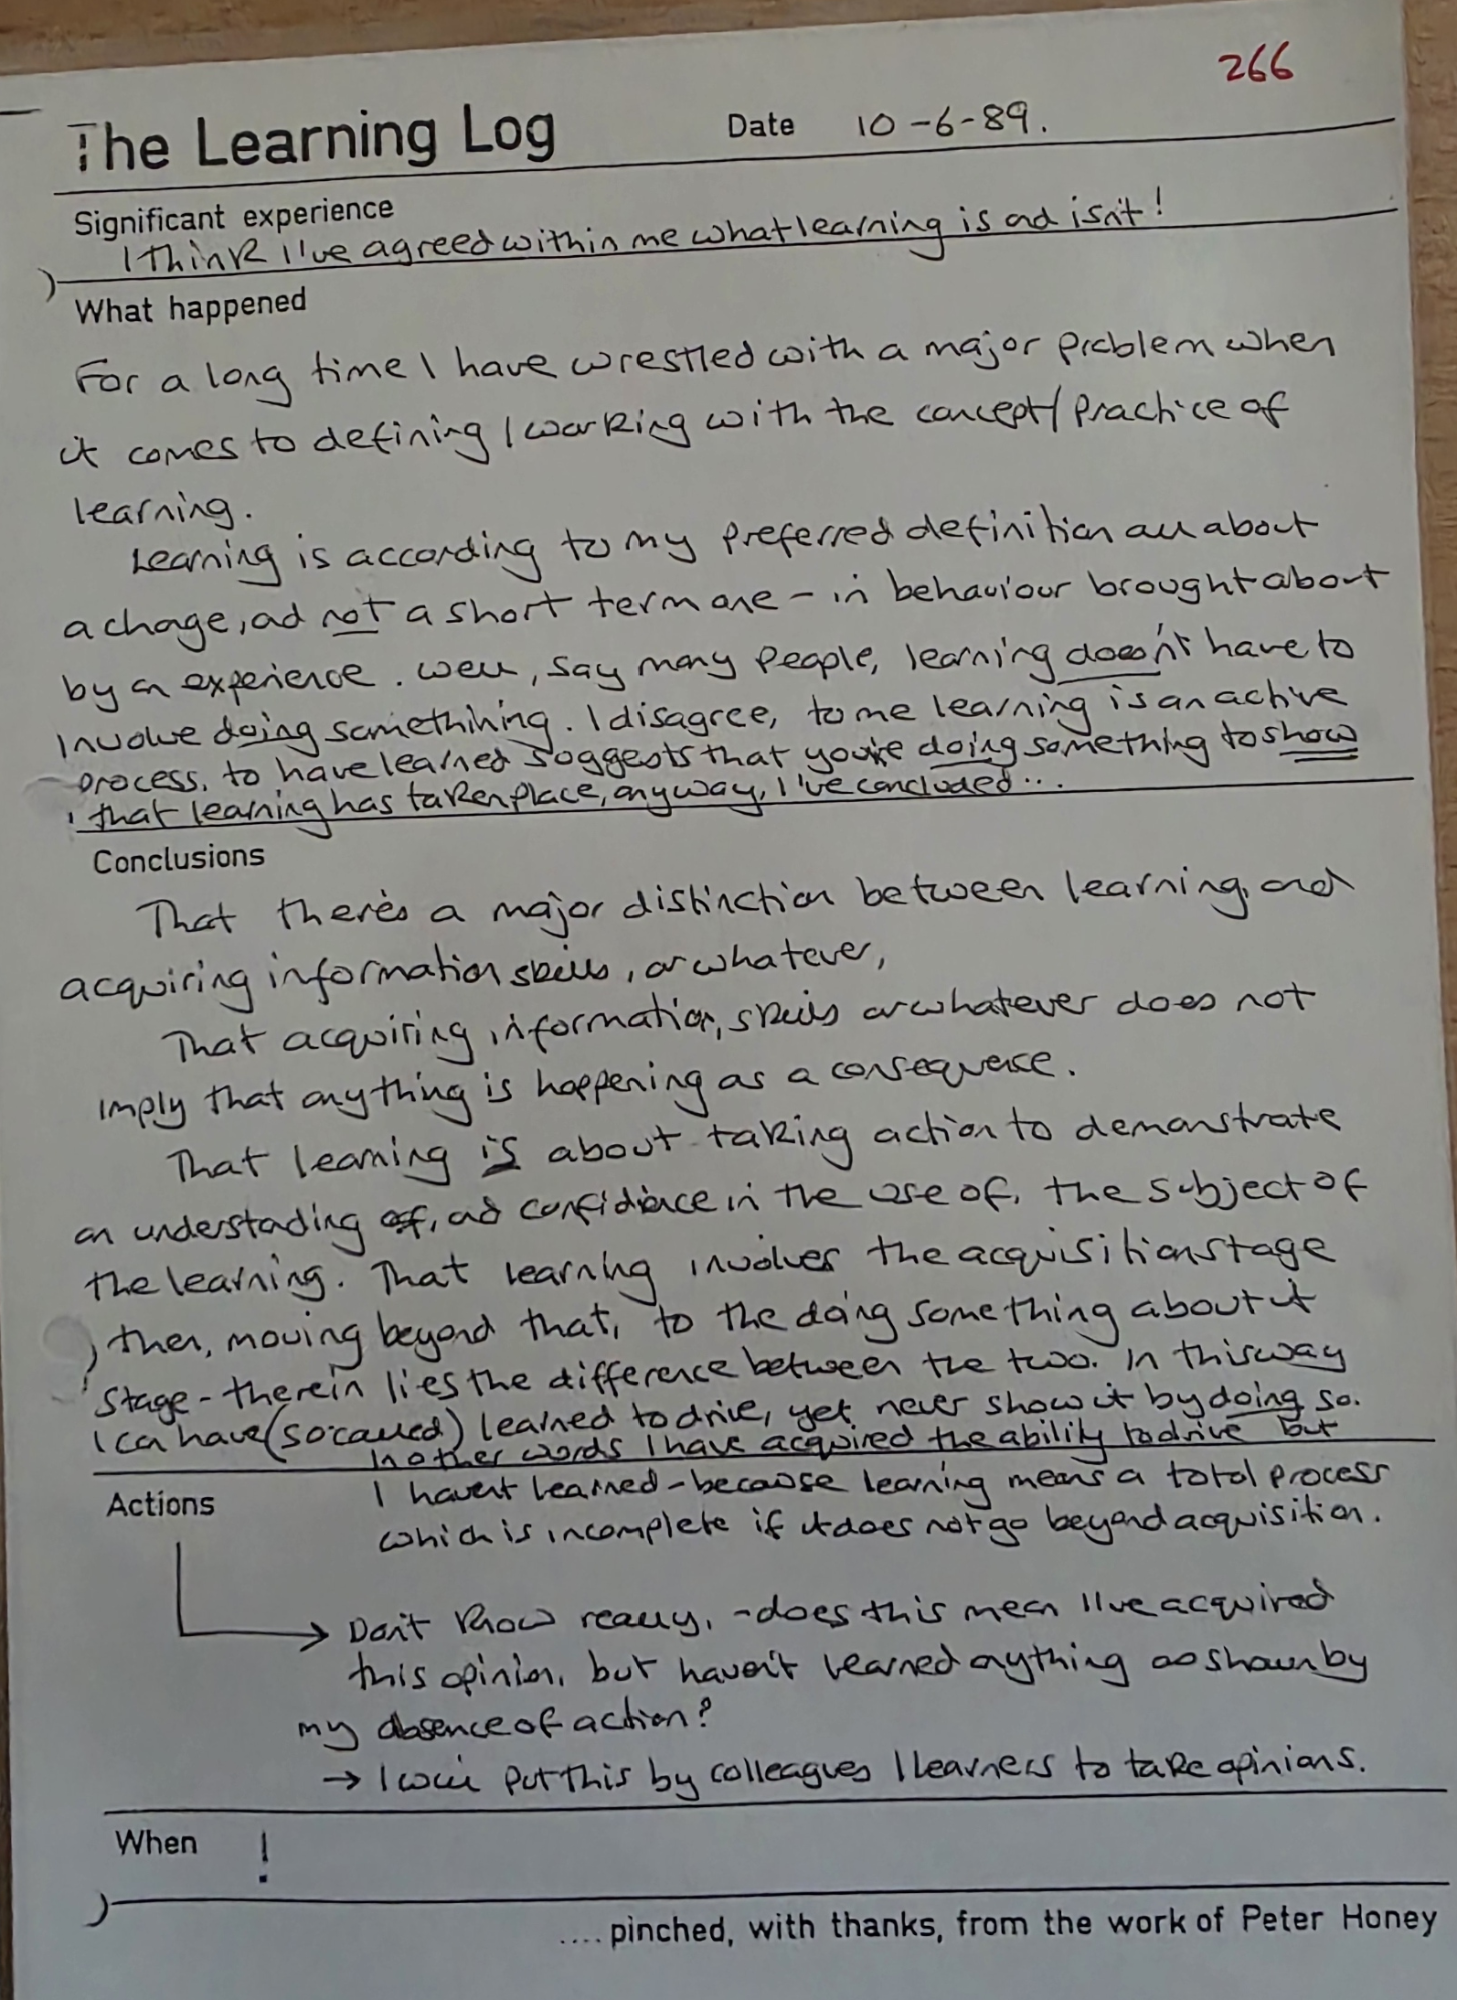 266
The Learning Log Date 10-6-89.
Significant experience
I think I've agreed within me what learning is ad isn't!
What happened
For a long time I have wrestled with a major problem when
it comes to defining / working with the concept / practice of
learning.
Learning is according to my preferred definition all about
a chage, ad not a short term one - in behaviour brought about
by an experience. Well, say many people, learning doesn't have to
involve doing somethining. I disagree, to me learning is an active
process, to have learned suggests that you're doing something to show
that learning has taken place, anyway, I've concluded...
Conclusions
That there's a major distinction between learning, and
acquiring information skills, or whatever,
That acquiring information, skills or whatever does not
imply that anything is happening as a consequence.
That learning is about taking action to demonstrate
an understading of, ad confidence in the use of, the subject of
the learning. That learning involves the acquisition stage
then, moving beyond that, to the doing something about it
stage - therein lies the difference between the two. In this way
I can have (so-called) learned to drive, yet never show it by doing so.
In other words I have acquired the ability to drive but
Actions I havent learned - because learning means a total process
which is incomplete if it does not go beyond acquisition.
→ Don't know really, - does this mean I've acquired
this opinion, but haven't learned anything as shown by
my absence of action?
→ I will put this by colleagues / learners to take opinions.
When !
.... pinched, with thanks, from the work of Peter Honey